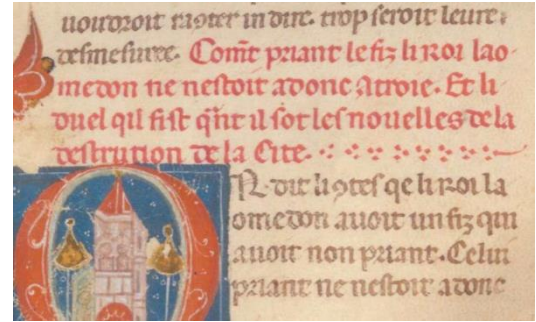 uoudroit ɔter in dire. trop seroit leure
desmesuree. Com̄t priant le fiz li roi lao
medon ne nestoit adonc a troie. Et li
duel qil fist qn̄t il sot les nouelles de la
destrution de la Cite.
N dit li ɔtes qe li roi la
omedon auoit un fiz qui
auoit non priant. Celui
priant ne nestoit adonc